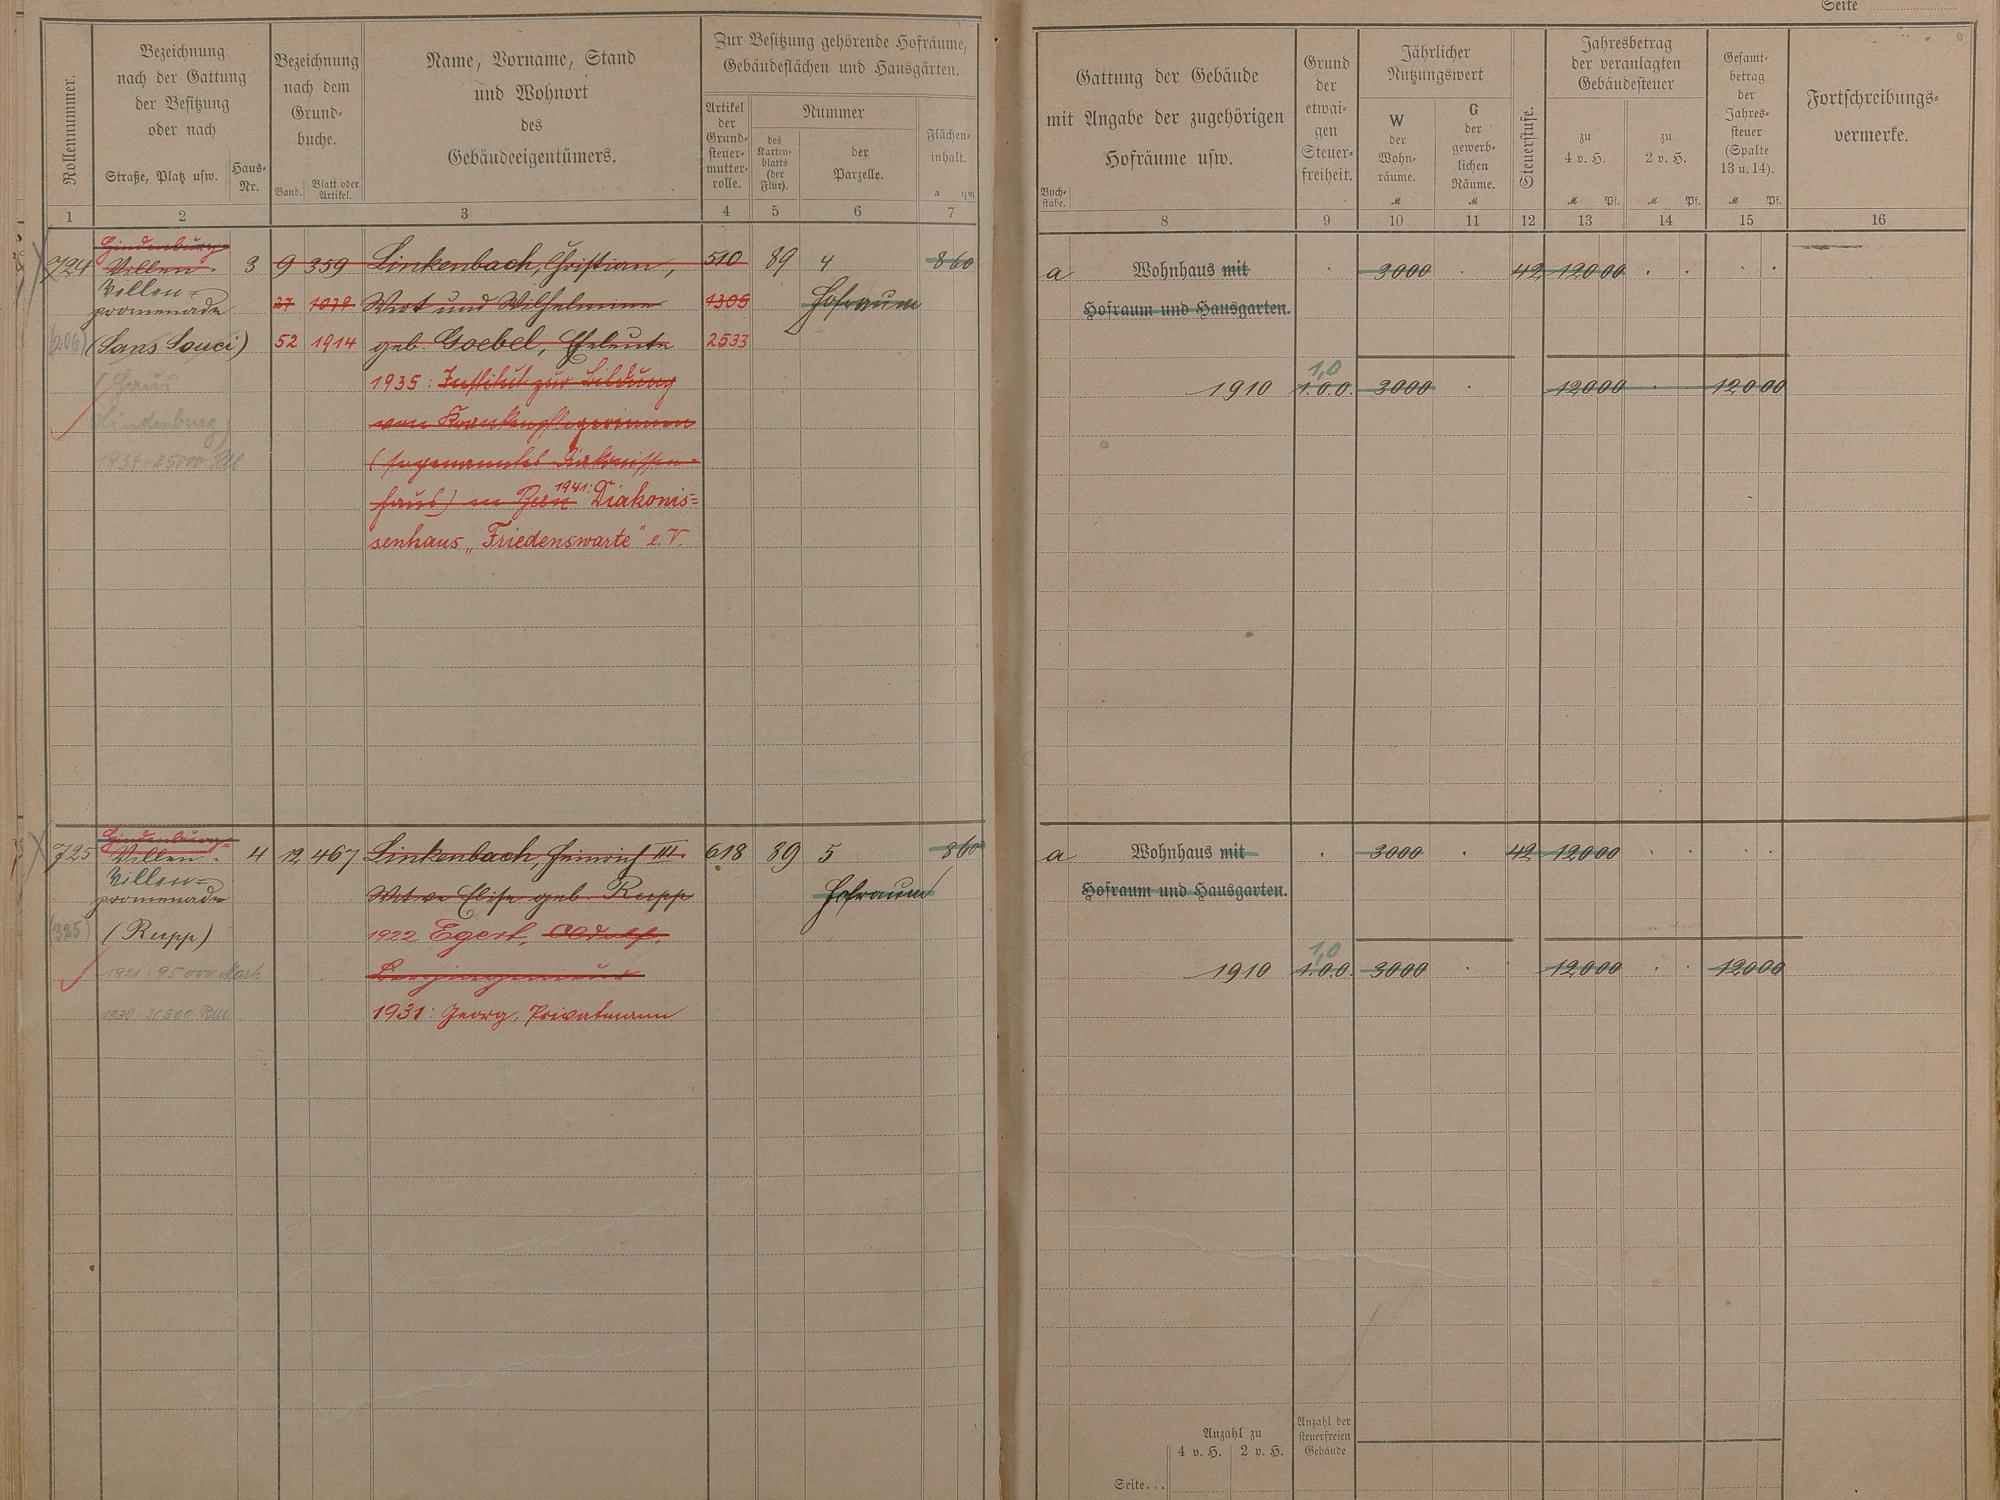 Seite
Rollennummer.
Bezeichnung
nach der Gattung
der Besitzung
oder nach
Straße, Platz usw.
Haus-
Nr.
Bezeichnung
nach dem
Grund-
buche.
Band.
Blatt oder
Artikel.
Name, Vorname, Stand
und Wohnort
des
Gebäudeeigentümers.
Zur Besitzung gehörende Hofräume,
Gebäudeflächen und Hausgärten.
Artikel
der
Grund-
steuer-
mutter-
rolle.
Nummer
des
Karten-
blatts
(der
Flur).
der
Parzelle.
Flächen-
inhalt.
a qm
1 2 3 4 5 6 7
Gattung der Gebäude
mit Angabe der zugehörigen
Hofräume usw.
Buch-
stabe.
Grund
der
etwai-
gen
Steuer-
freiheit.
Jährlicher
Nutzungswert
W
der
Wohn-
räume.
M
G
der
gewerb-
lichen
Räume.
M
Steuerstufe.
Jahresbetrag
der veranlagten
Gebäudesteuer
zu
4 v. H.
M Pf.
zu
2 v. H.
M Pf.
Gesamt-
betrag
der
Jahres-
steuer
(Spalte
13 u. 14).
M Pf.
Fortschreibungs-
vermerke.
8 9 10 11 12 13 14 15 16
Hindenburg-
724 Villen- 3 9 359 Linkenbach, Christian, 510 89 4 860
Villen-
promenade 27 1079 Wirt und Wilhelmine 1305 Hofraum
(206) (Sans Souci) 52 1914 geb. Goebel, Eheleute 2533
(Haus
Hindenburg)
1934 = 25000 RM
1935: Institut zur Bildung
von Krankenpflegerinnen
(sogenanntes Diakonissen-
haus) in Bern 1941: Diakonis-
senhaus „Friedenswarte" e. V.
a Wohnhaus mit 3000 42 120 00
Hofraum und Hausgarten.
1,0
1910 1.0.0. 3000 120 00 120 00
Hindenburg-
725 Villen- 4 12 467 Linkenbach, Heinrich III. 618 89 5 860
Villen-
promenade Witwe Elise geb. Rupp Hofraum
(325) (Rupp) 1922 Egert, Adolf,
1921: 95000 Mark Bergingenieur
1931: Georg, Privatmann
a Wohnhaus mit 3000 42 120 00
Hofraum und Hausgarten.
1,0
1910 1.0.0. 3000 120 00 120 00
Anzahl zu
4 v. H. 2 v. H.
Anzahl der
steuerfreien
Gebäude
Seite...